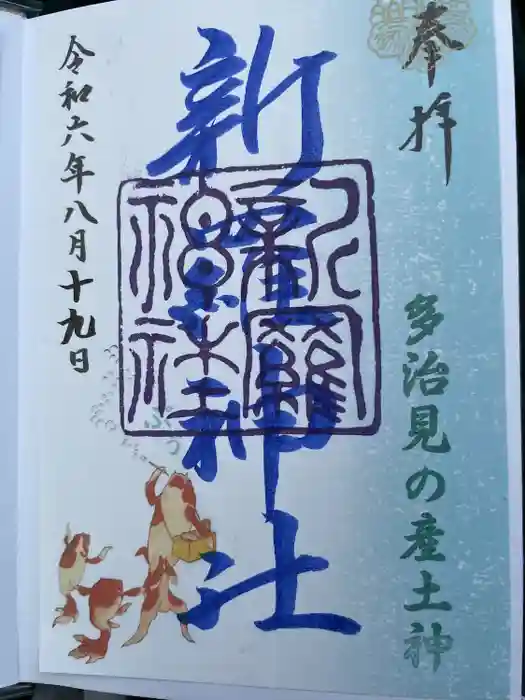 奉拝
多治見の産土神
新羅神社
新羅
神社
令和六年八月十九日